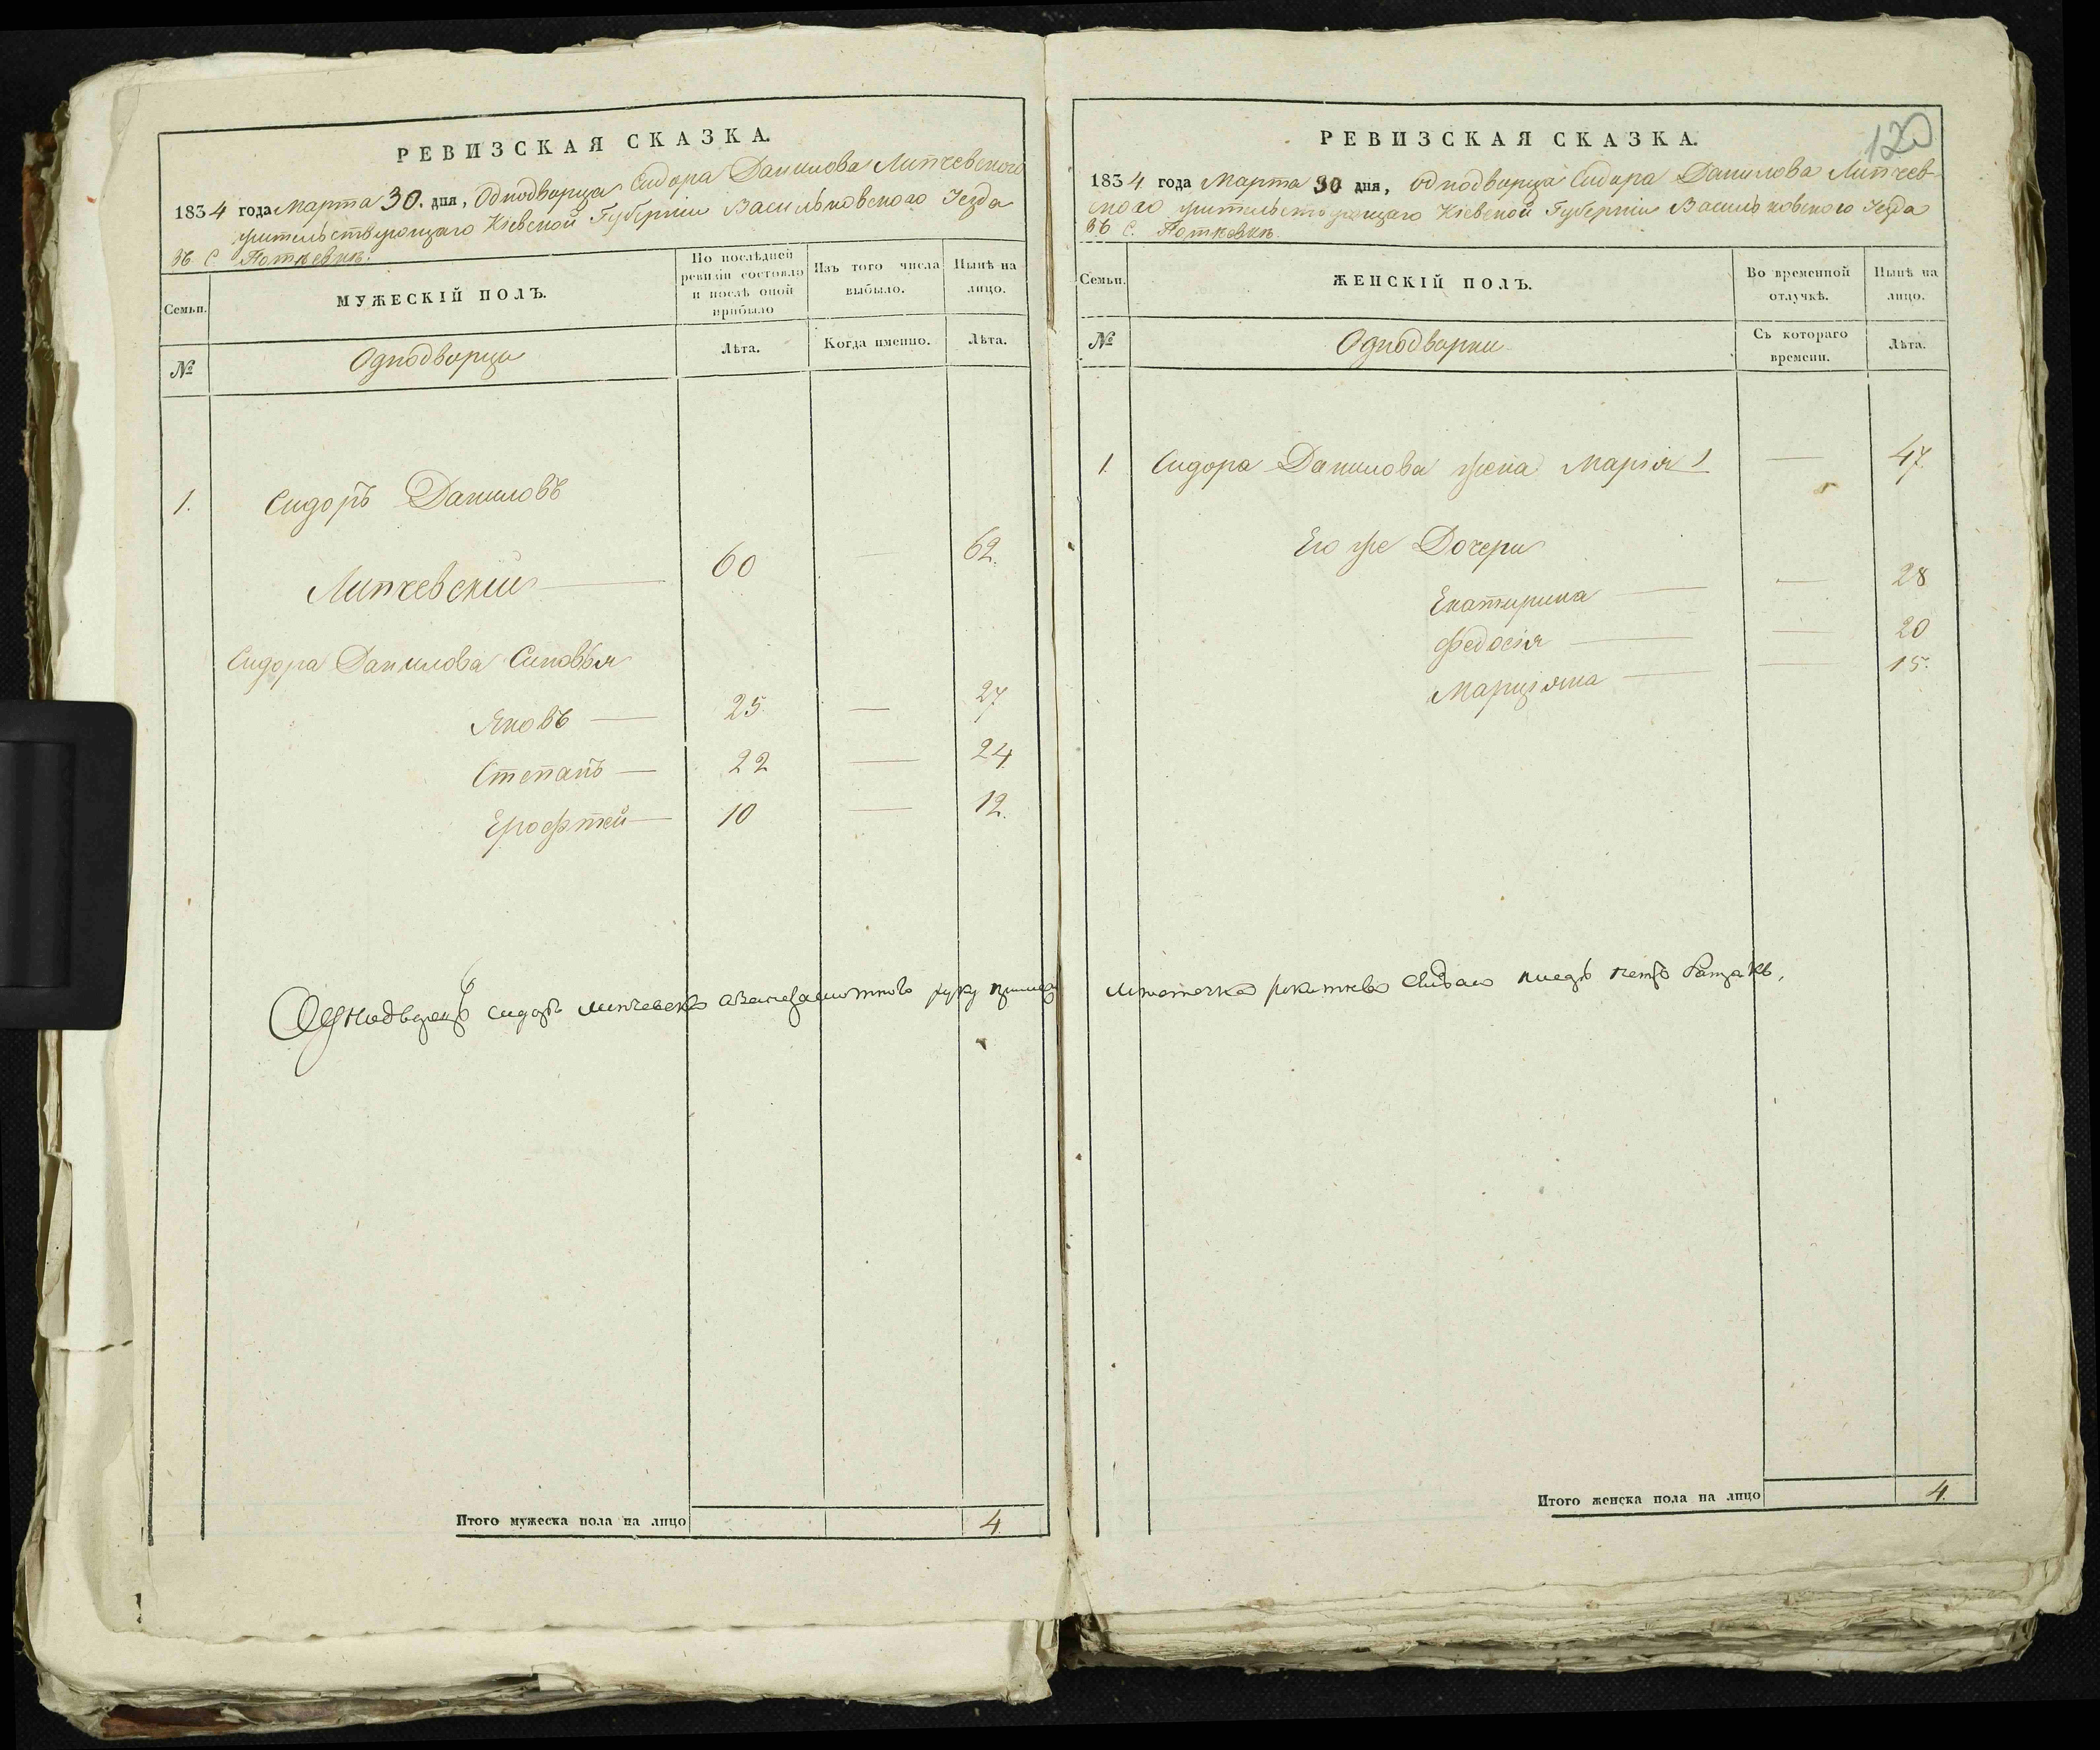 РЕВИЗСКАЯ СКАЗКА.
1834 года Марта 30. дня, Однодворца Сидора Данилова Липчевского
жительствующаго Кіевской Губерніи Васильковского Уезда
въ С.
Семьи.
МУЖЕСКІЙ ПОЛЪ.
По послѣдней ревизіи состояло и послѣ оной прибыло
Изъ того числа выбыло.
Нынѣ на лицо.
№
Однодворцы
Лѣта.
Когда именно.
Лѣта.
1. Сидоръ Даниловъ
Липчевскій — 60 — 62.
Сидора Данилова Сыновья
Яковъ — 25. — 27
Степанъ — 22 — 24
Ерофтей — 10 — 12.
Однодворецъ сидоръ липчевскъ руку
Итого мужеска пола на лицо 4.
120
РЕВИЗСКАЯ СКАЗКА.
1834 года Марта 30 дня, Однодворца Сидора Данилова Липчев-
ского жительствующаго Кіевской Губерніи Васильковского Уезда
въ С.
Семьи.
ЖЕНСКІЙ ПОЛЪ.
Во временной отлучкѣ.
Нынѣ на лицо.
№
Однодворки
Съ котораго времени.
Лѣта.
1. Сидора Данилова жена Марія 1 — 47.
Его же Дочери
Екатирина — — 28
Федосія — — 20
Марціяна — — 15.
Итого женска пола на лицо 4.